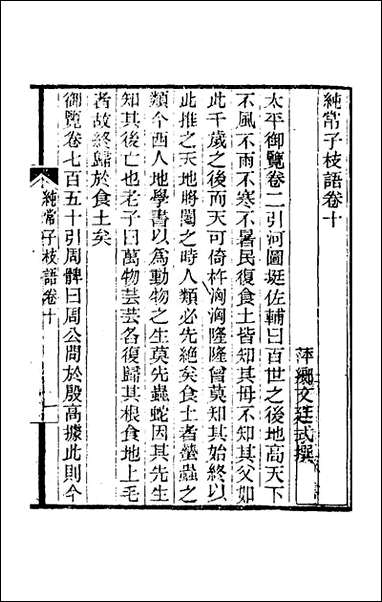 純常子枝語卷十
萍鄉文廷式撰
太平御覽卷二引河圖挺佐輔曰百世之後地高天下
不風不雨不寒不暑民復食土皆知其母不知其父如
此千歲之後而天可倚杵洶洶隆隆曾莫知其始終以
此推之天地將闔之時人類必先絕矣食土者螘蟲之
類今西人地學書以為動物之生莫先蟲蛇因其先生
知其後亡也老子曰萬物芸芸各復歸其根食地上毛
者故終歸於食土矣
御覽卷七百五十引周髀曰周公問於殷高據此則今
純常子枝語卷十
一